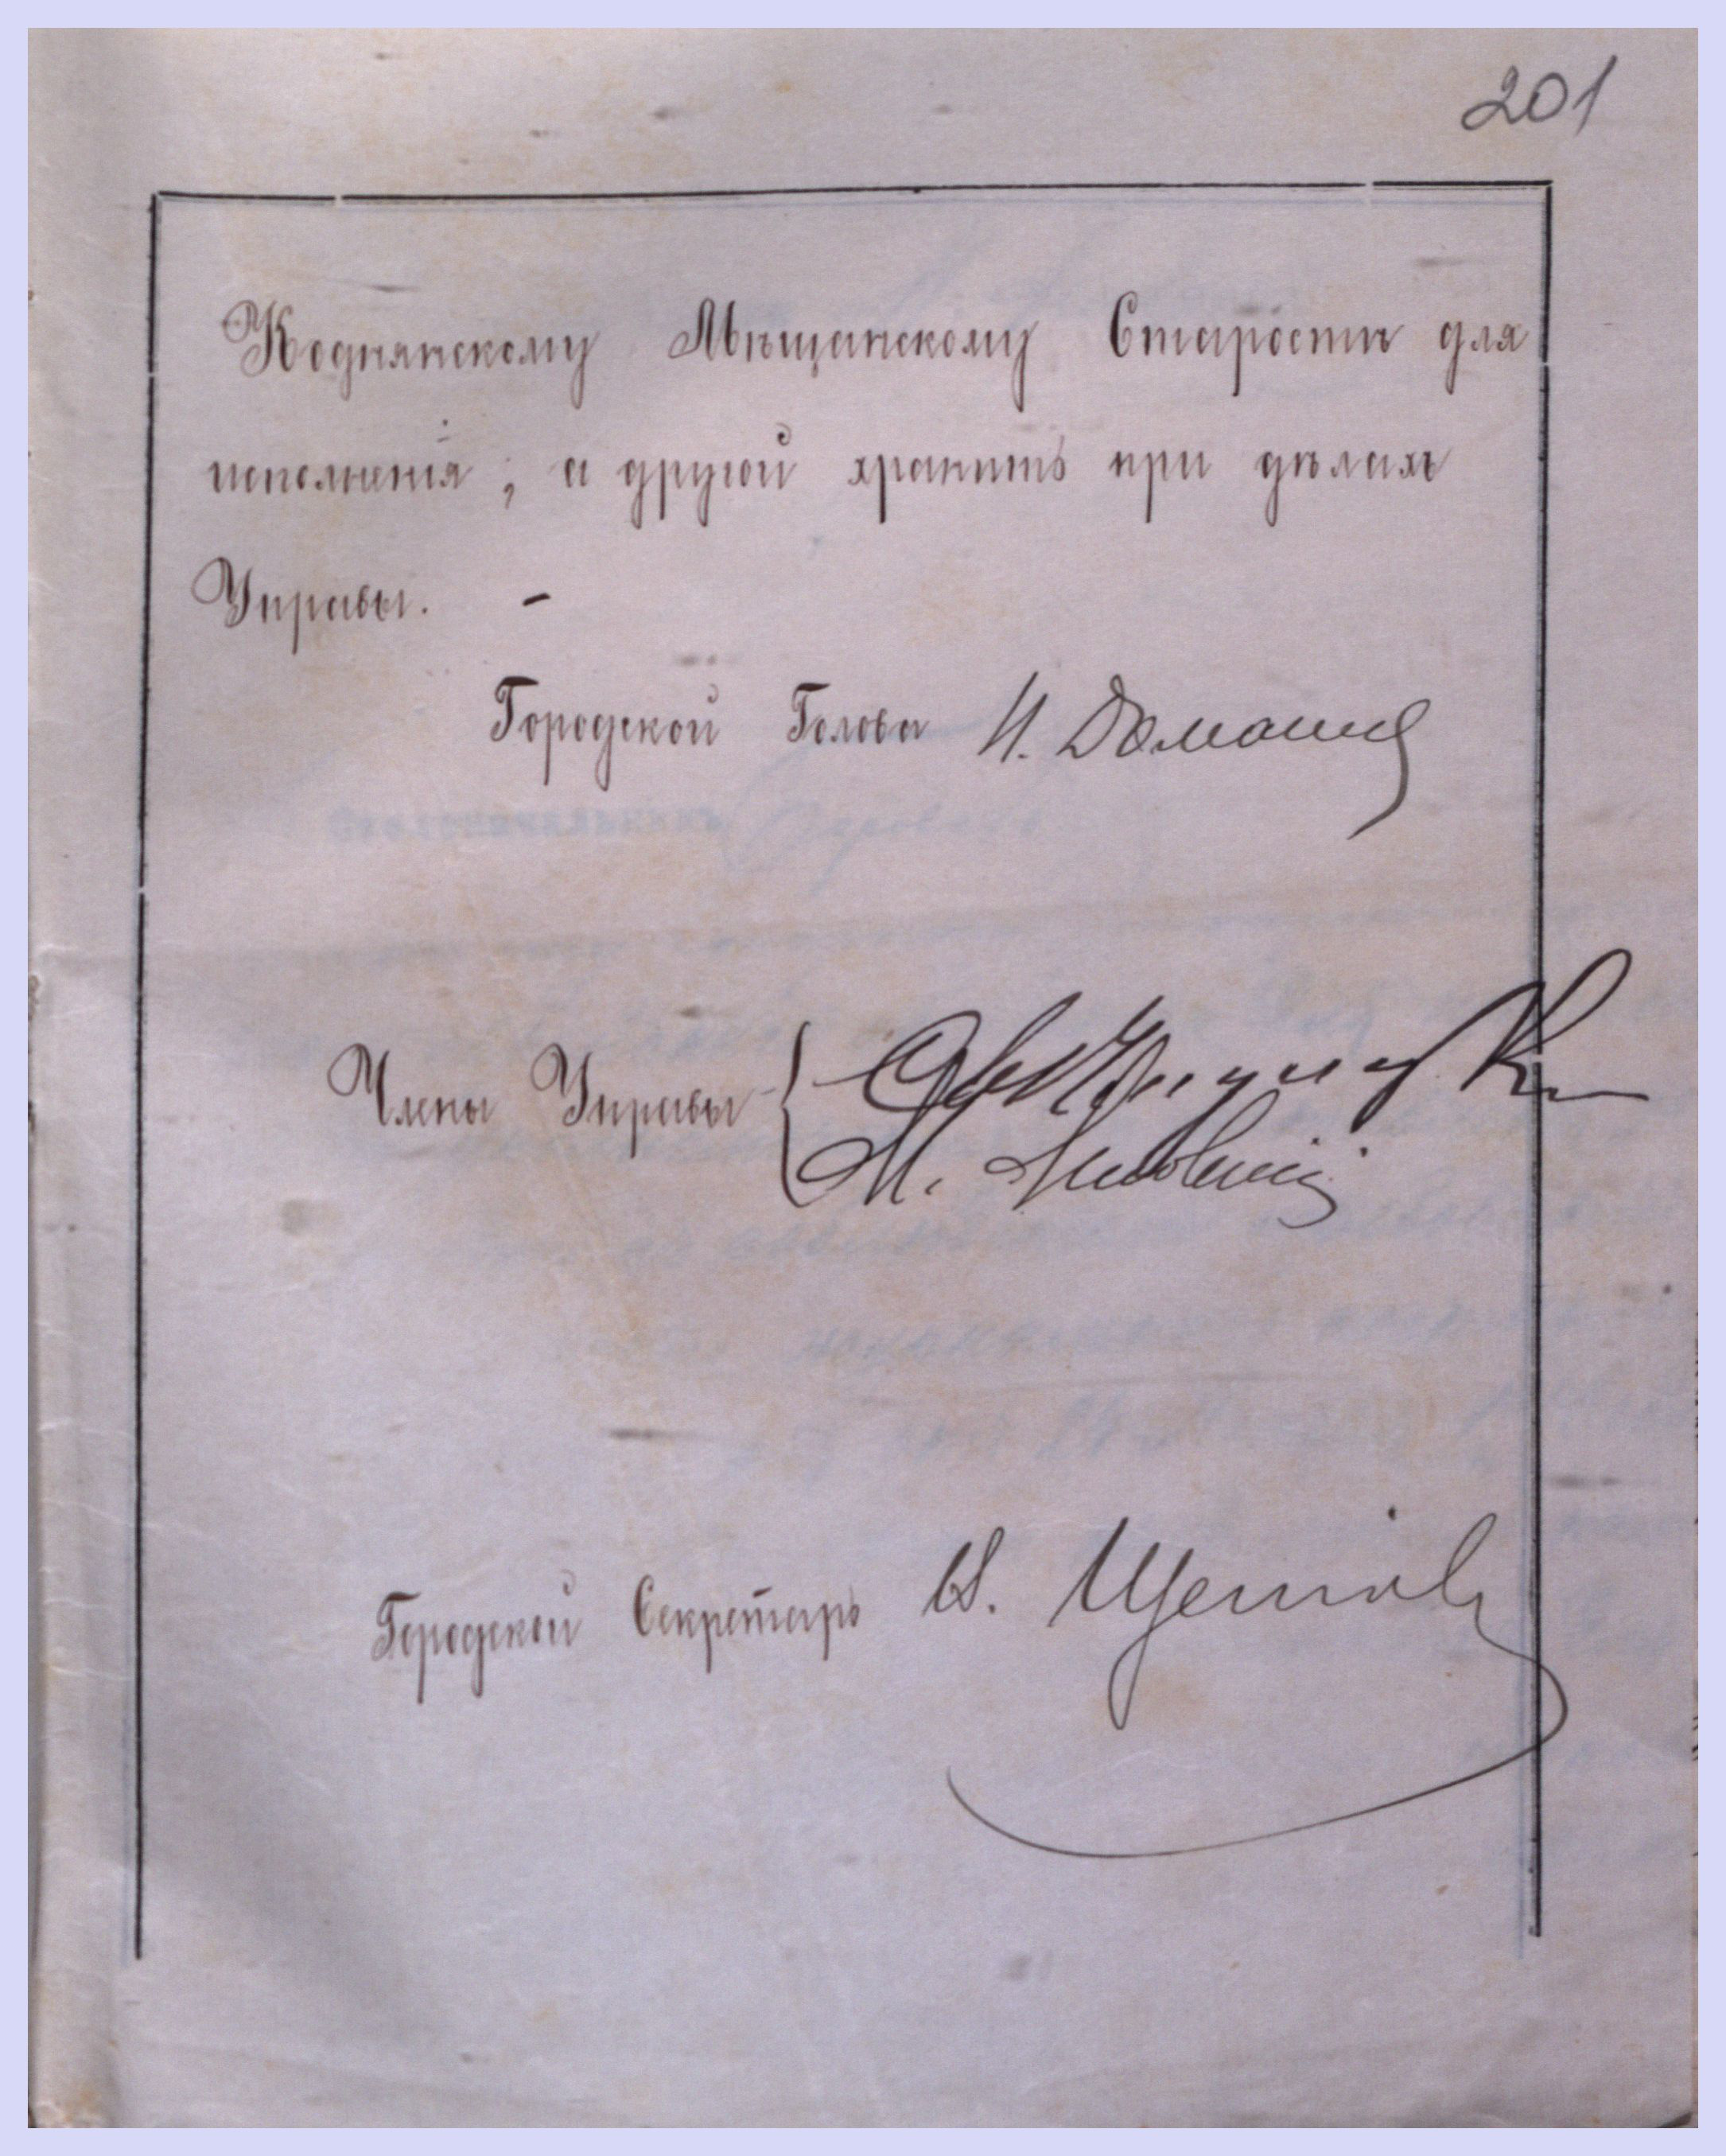 201
Коднянскому Мѣщанскому Старостѣ для
исполненія, а другой хранить при дѣлахъ
Управы. -
Городской Голова И.
Члены Управы М.
Городской Секретарь